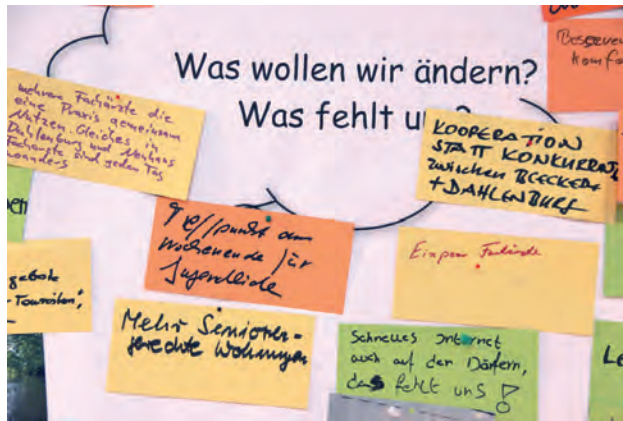 Was wollen wir ändern?
Was fehlt
mehrere Fachärzte die
eine Praxis gemeinsam
Nutzen. Gleiches in
Dahlenburg und Neuhaus
Fachärzte sind jeden Tag
woanders
KOOPERATION
STATT KONKURRENZ
zwischen BLECKEDE
+ DAHLENBURG
Treffpunkt am
Wochenende für
Jugendliche
Ein paar
Mehr Senioren-
gerechte Wohnungen
Schnelles Internet
auch auf den Dörfern,
das fehlt uns!